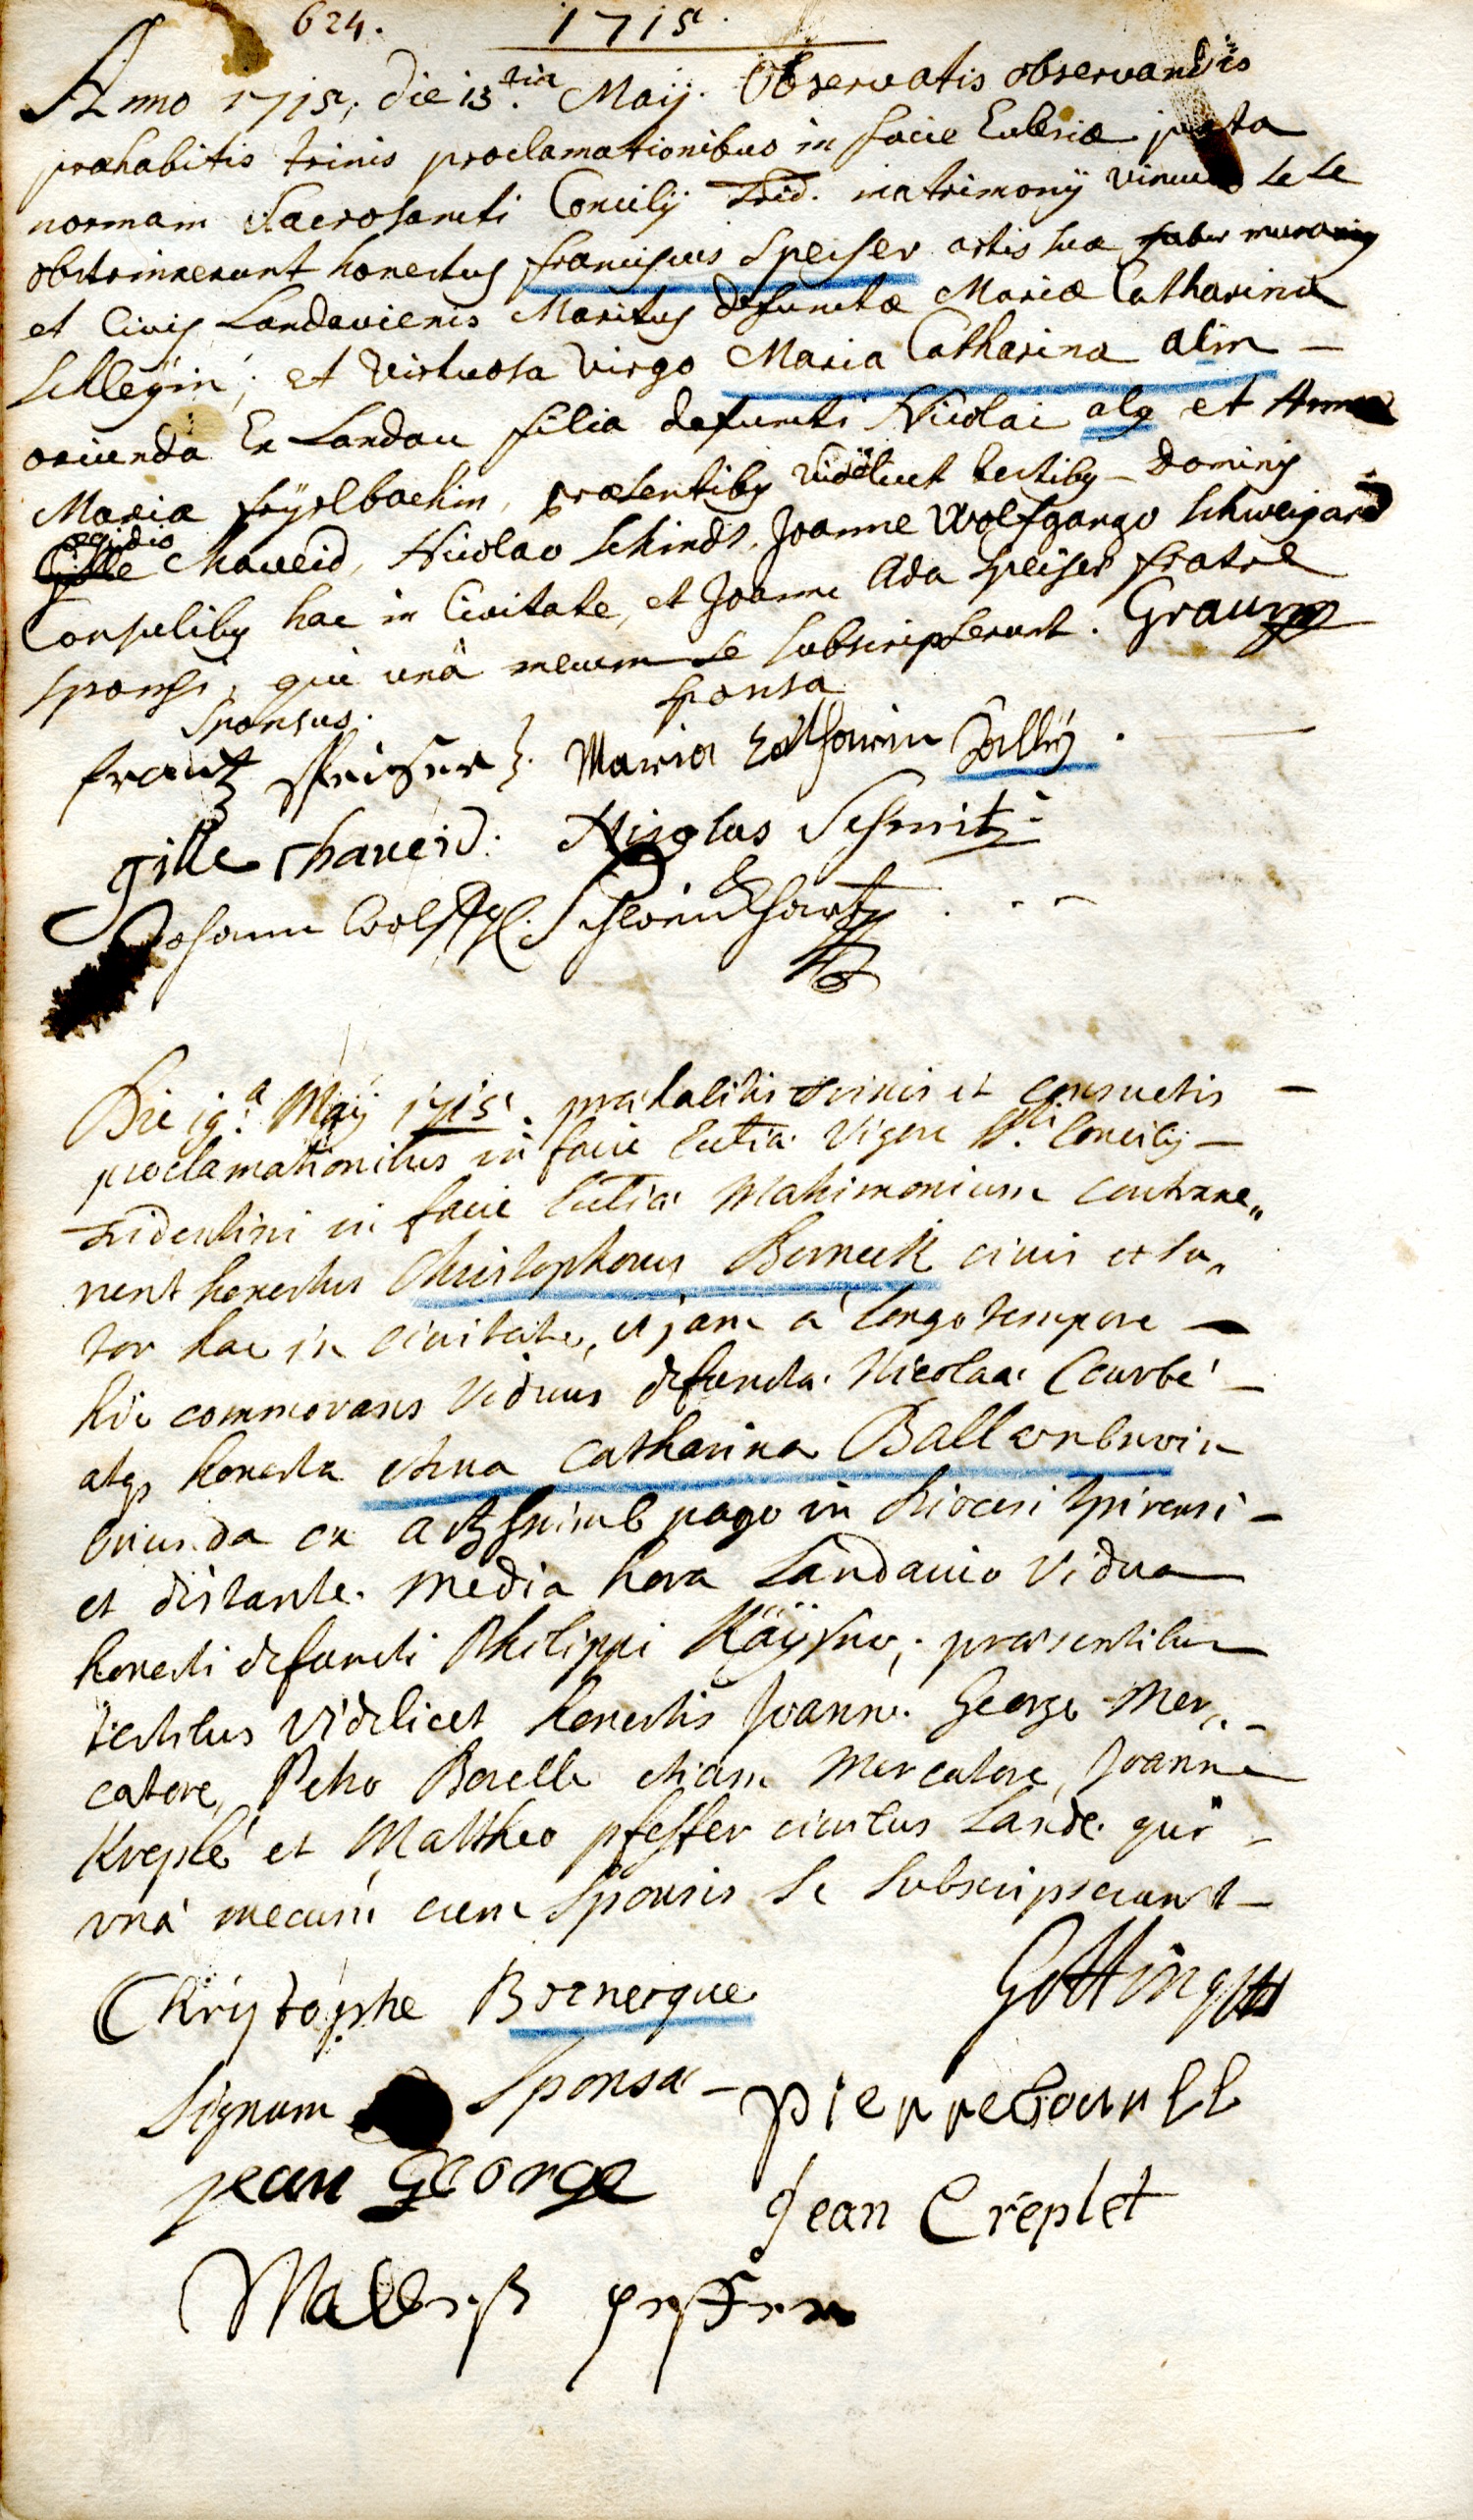 624. 1715.
Anno 1715, die 13.tia Maij. Observatis observandis
præhabitis trinis proclamationibus in facie Eclesiæ juxta
normam Sacrosancti Concilij Trid. matrimonij vinculo se se
obstrinxerunt honestus franciscus Speiser artis suæ faber murarius
et Civis Landaviensis Maritus defunctæ Mariæ Catharinæ
Schlegin; et virtuosa virgo Maria Catharina alin –
oriunda Ex Landau filia defuncti Nicolai alg et Annæ
Maria, præsentibus videlicet testibus – Dominis
ægidio Chaveid, Nicolao Schmidt, Joanne Wolfgango Schweigard
Consulibus hac in Civitate, et Joanne Ada Speiser fratre
sponsi, qui unà mecum se subscripserunt.
Sponsus. Sponsa
frantz Speiser Maria Catharina
gille Chaveid. Nicolas Schmitz
Johann Wolffg. Schweickhart
Die 19.a Maij 1715. præhabitis trinis et consuetis –
proclamationibus in facie Ecclia Vigore Sti. Concilij –
Tridentini in facie Ecclia Matrimonium contraxe„
runt honestus Christophorus Berneck civis et su„
tor hac in civitate, et jam à longo tempore –
hic commorans viduus defunctæ Nicolaæ Courbé –
atq honesta Anna Catharina
oriunda ex pago in diocesi spirensi –
et distante media hora Landavio Vidua
honesti defuncti Philippi præsentibus
testibus videlicet honestis Joanne George Mer„
catore, Petro Borelle etiam Mercatore, Joanne
Kreplé et Mattheo pfeffer civibus Lande. qui –
unà mecum cum Sponsis se subscripserunt –
Chrystophe Bernerque
Signum Sponsæ – pierre bourell
jean George Jean Creplet